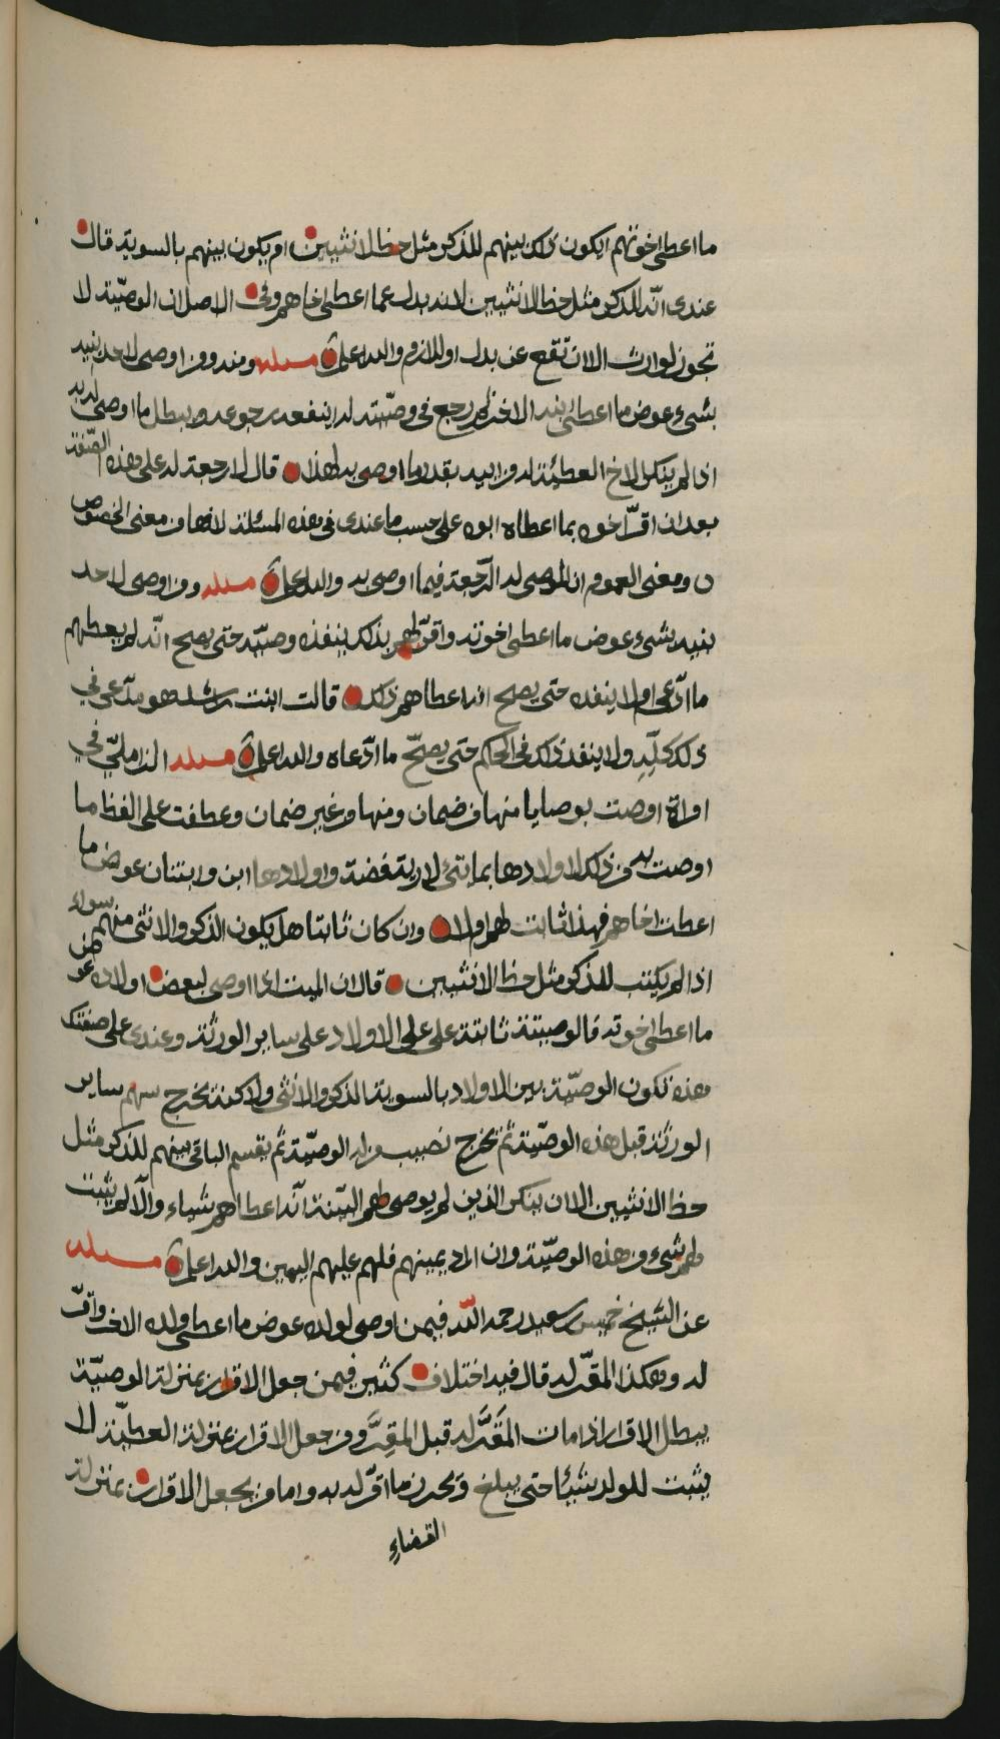 ما اعطى اخوتهم ايكون ذلك بينهم للذكر مثل حظ الانثيين ام يكون بينهم بالسوية قال
عندى انّه للذكر مثل حظ الانثيين لانه بدل عما اعطى اخاهم وفى الاصل ان الوصيّة لا
تجوز لوارث الا ان تقع عن بدل او للازم والله اعلم مسئله ومنه ومن اوصى لاحد بنيه
بشىء عوض ما اعطى بنيه الاخر ثم رجع فى وصيّته له اينفعه رجوعه ويبطل ما اوصى له به
اذا لم ينكر الاخ العطيّة له من ابيه بقدر ما اوصى به لهذا قال لا رجعة له على هذه الصّفة
بعد ان اقرّ اخوه بما اعطاه ابوه على حسب ما عندى فى هذه المسئلة لانها من معنى الخصوص
ن ومعنى العموم ان للموصى له الرّجعة فيما اوصى به والله اعلم مسئله ومن اوصى لاحد
بنيه بشىء عوض ما اعطى اخوته واقرّ لهم بذلك ينفذه وصيّه حتى يصح انّه لم يعطهم
ما ادّعى ام لا ينفذه حتى يصح انه اعطاهم ذلك قالت ابنت راشد هو مدّعى فى
ذلك كلّه ولا ينفذ ذلك فى الحكم حتى يصحّ ما ادّعاه والله اعلم مسئله الزاملىّ فى
امراة اوصت بوصايا منها من ضمان ومنها من غير ضمان وعطفت على الفظ ما
اوصت به من ذلك لاولادها بمائتى لارية فضة واولادها ابن وابنتان عوض ما
اعطت اخاهم فهذا ثابت لهم ام لا وان كان ثابتا هل يكون الذكر والانثى منهم سواء
اذا لم يكتب للذكر مثل حظ الانثيين قال ان الميت اذا اوصى لبعض اولاده عوض
ما اعطى اخوته فالوصيّة ثابتة على على الاولاد على ساير الورثة وعندى على صفتك
هذه تكون الوصيّة بين الاولاد بالسوية الذكر والانثى ولاكنه يخرج سهم ساير
الورثة قبل هذه الوصيّة ثم يخرج نصيب من له الوصيّة ثم يقسم الباقى بينهم للذكر مثل
حظ الانثيين الا ان ينكر الذين لم يوصى لهم البتّة انّه اعطاهم شياء والّا لم يثبت
لهم شىء من هذه الوصيّة وان اراد يمينهم فلهم عليهم اليمين والله اعلم مسئله
عن الشيخ خميس بن سعيد رحمه اللّه فيمن اوصى لولده عوض ما اعطى ولده الاخر واقرّ
له وهكذا المقرّ له قال فيه اختلاف كثير فيمن جعل الاقرار بمنزلة الوصيّة
يبطل الاقرار اذا مات المقَرَّ له قبل المقِرَّ ومن جعل الاقرار بمنزلة العطيّة لا
يثبت للولد شيئا حتى يبلغ ويحرز ما اقرّ له به واما من يجعل الاقرار بمنزلة
القضاء